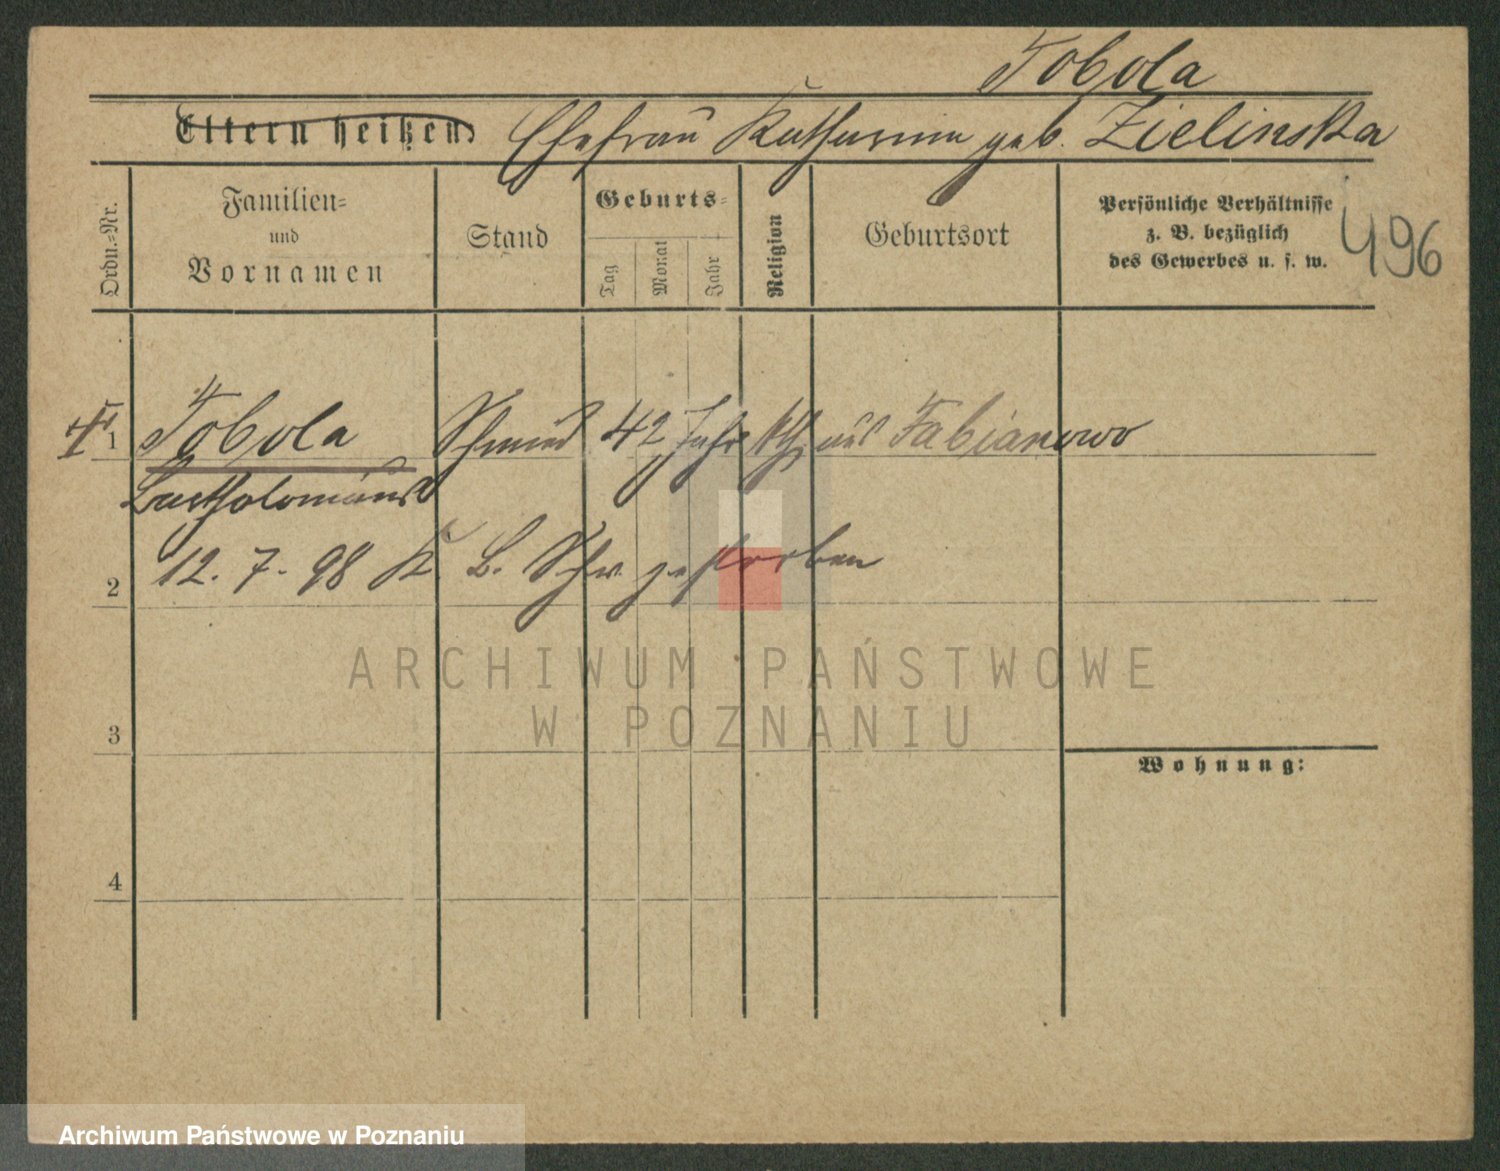 Tobola
Eltern heißen Ehefrau Katharina geb. Zielinska
Ordn.=Nr.
Familien=
und
Vornamen
Stand
Geburts=
Tag
Monat
Jahr
Religion
Geburtsort
Persönliche Verhältnisse
z. B. bezüglich
des Gewerbes u. s. w.
496
1 Tobola Schmied 42 Jahr kth. aus Fabianowo
Bartholomäus
12. 7. 98 K. B. Schw. gestorben
2
3
Wohnung:
4
ARCHIWUM PAŃSTWOWE
W POZNANIU
Archiwum Państwowe w Poznaniu